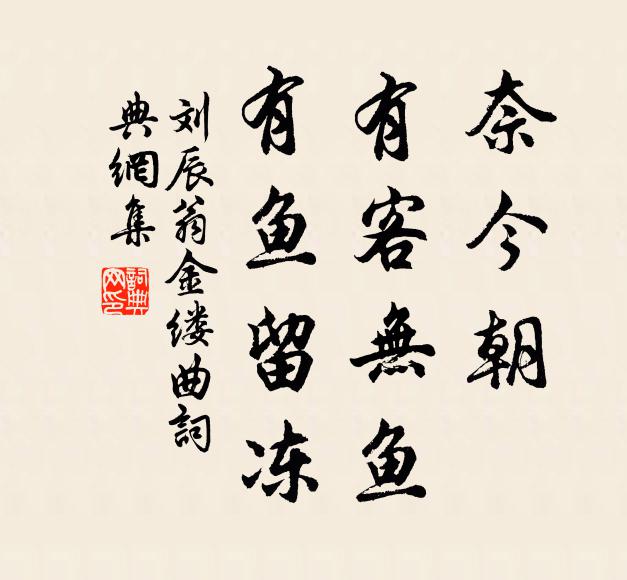 奈今朝
有客無鱼
有鱼留冻
刘辰翁金缕曲詞
典網集
詞典網印